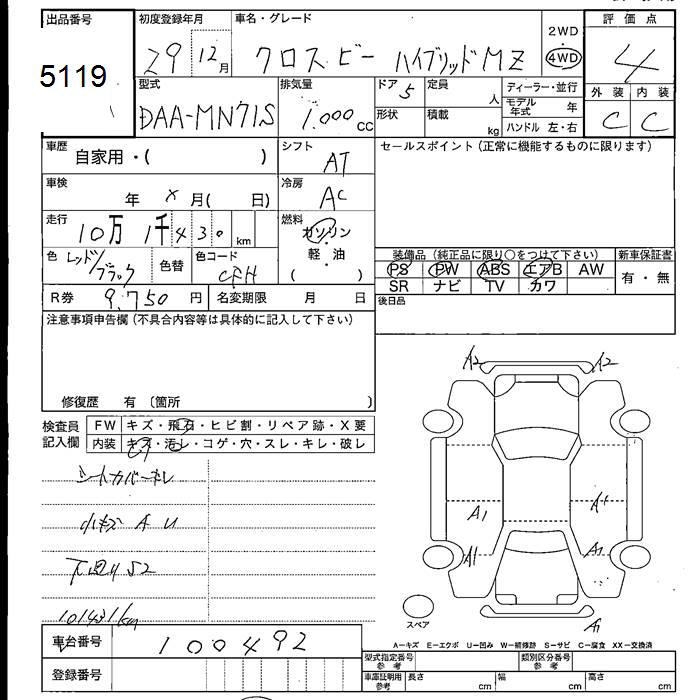 出品番号 初度登録年月 車名・グレード 2WD ・ 4WD 評価点
5119 29 12月 クロスビー ハイブリッドMZ 4
型式 排気量 ドア 5 定員 人 ディーラー・並行 外装 内装
DAA-MN71S 1.000 cc 形状 積載 kg モデル年式 年 C C
ハンドル 左・右
車歴 自家用・( ) シフト AT セールスポイント(正常に機能するものに限ります)
車検 年 X 月( 日) 冷房 AC
走行 10万 1千430 km 燃料 ガソリン・軽油 ( )
色 レッド/ブラック 色替 色コード CFH 装備品(純正品に限り○をつけて下さい) 新車保証書
PS PW ABS エアB AW 有・無
SR ナビ TV カワ
R券 9,750 円 名変期限 月 日 後日品
注意事項申告欄(不具合内容等は具体的に記入して下さい)
修復歴 有 (箇所 )
検査員記入欄 FW キズ・飛石・ヒビ割・リペア跡・X要
内装 キズ・汚レ・コゲ・穴・スレ・キレ・破レ
シートカバーキレ
小キズ A U
下廻りS2
101431km
A2 A2
A1 A1
A1 A1
A1
スペア
A-キズ E-エクボ U-凹み W-補修跡 S-サビ C-腐食 XX-交換済
車台番号 100492
登録番号
型式指定番号 参考 類別区分番号 参考
車庫証明用 参考 長さ cm 幅 cm 高さ cm